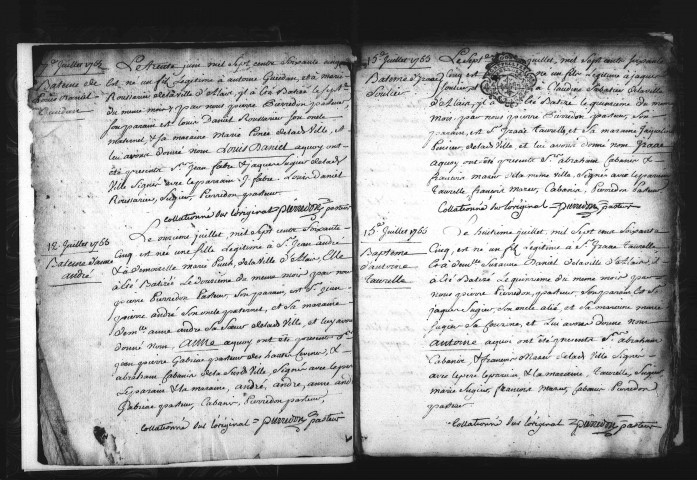 7e Juillet 1765
Bateme de
Louis Daniel
Le trente juin mil sept cents soixante cinq
est né un fils légitime à antoine et à marie
Roussarier de la ville d'Alais, il a été Batizé le sept
du même mois par nous pierre Pierredon pasteur,
son parain est Louis Daniel Roussarier son oncle
maternel, & sa maraine Marie Ponce de la de Ville, et
lui avons donné nom Louis Daniel aquoy ont
été presents Sr. Jean fabre & Jaques de la de
Ville signés avec le parain J. fabre Louis Daniel
Roussarier, Pierredon pasteur
Collationné sur l'original Pierredon pasteur
12. Juillet 1765
Bateme d'anne
andré
Le onzieme juillet, mil sept cents soixante
cinq est né une fille légitime à Sr. Jean andré
& à demoizelle Marie de la ville d'Alais, Elle
a été Batizée le douzieme du même mois par nous
pierre Pierredon Pasteur, Son parain est Sr. Jean
pierre andré son oncle paternel, et sa maraine
demlle anne andré sa soeur de la de Ville, et luy avons
donné nom, anne aquoy ont été presents Sr.
Jean pierre Gabriac pasteur des hautes Cevenes, &
abraham Cabanis de la de Ville, Signés avec le pere
le parain & la maraine, andré, andre, anne andré
Gabriac pasteur, Cabanis Pierredon pasteur
Collationné sur l'original Pierredon pasteur
15e Juillet 1765
Bateme d'
Soulier
Le sept juillet, mil sept cents soixante
cinq est né un fils légitime à Jaques
Soulier, & à Claudine Sabatier de la ville
d'Alais, il a été Batizé le quinzieme du même
mois, par nous pierre Pierredon pasteur, son
parain, est Sr. Taurelle et sa maraine
de la de ville, et lui avons donné nom
aquoy ont été presents Sr. abraham Cabanis &
francois mazer de la même ville, Signé avec le parain
Taurelle, francois Mazer, Cabanis, Pierredon Pasteur
Collationné sur l'original Pierredon pasteur
15e Juillet 1765
Bapteme
d'antoine
Taurelle
Le huitieme juillet, mil sept cens soixante
Cinq, est né un fils légitime à Sr. Taurelle
& à demlle Suzanne Daniel de la ville d'Alais, il
a été Batizé le quinzieme du même mois par
nous pierre Pierredon, pasteur, son parain est Sr.
Jaques son oncle alié, et sa maraine marie
sa couzine, et lui avons donné nom
antoine aquoy ont été presents Sr. abraham
Cabanis & francois Mazer de la de Ville Signés
avec le pere le parain & la maraine, Taurelle,
marie, francois Mazer, Cabanis Pierredon
pasteur
Collationné sur l'original Pierredon pasteur